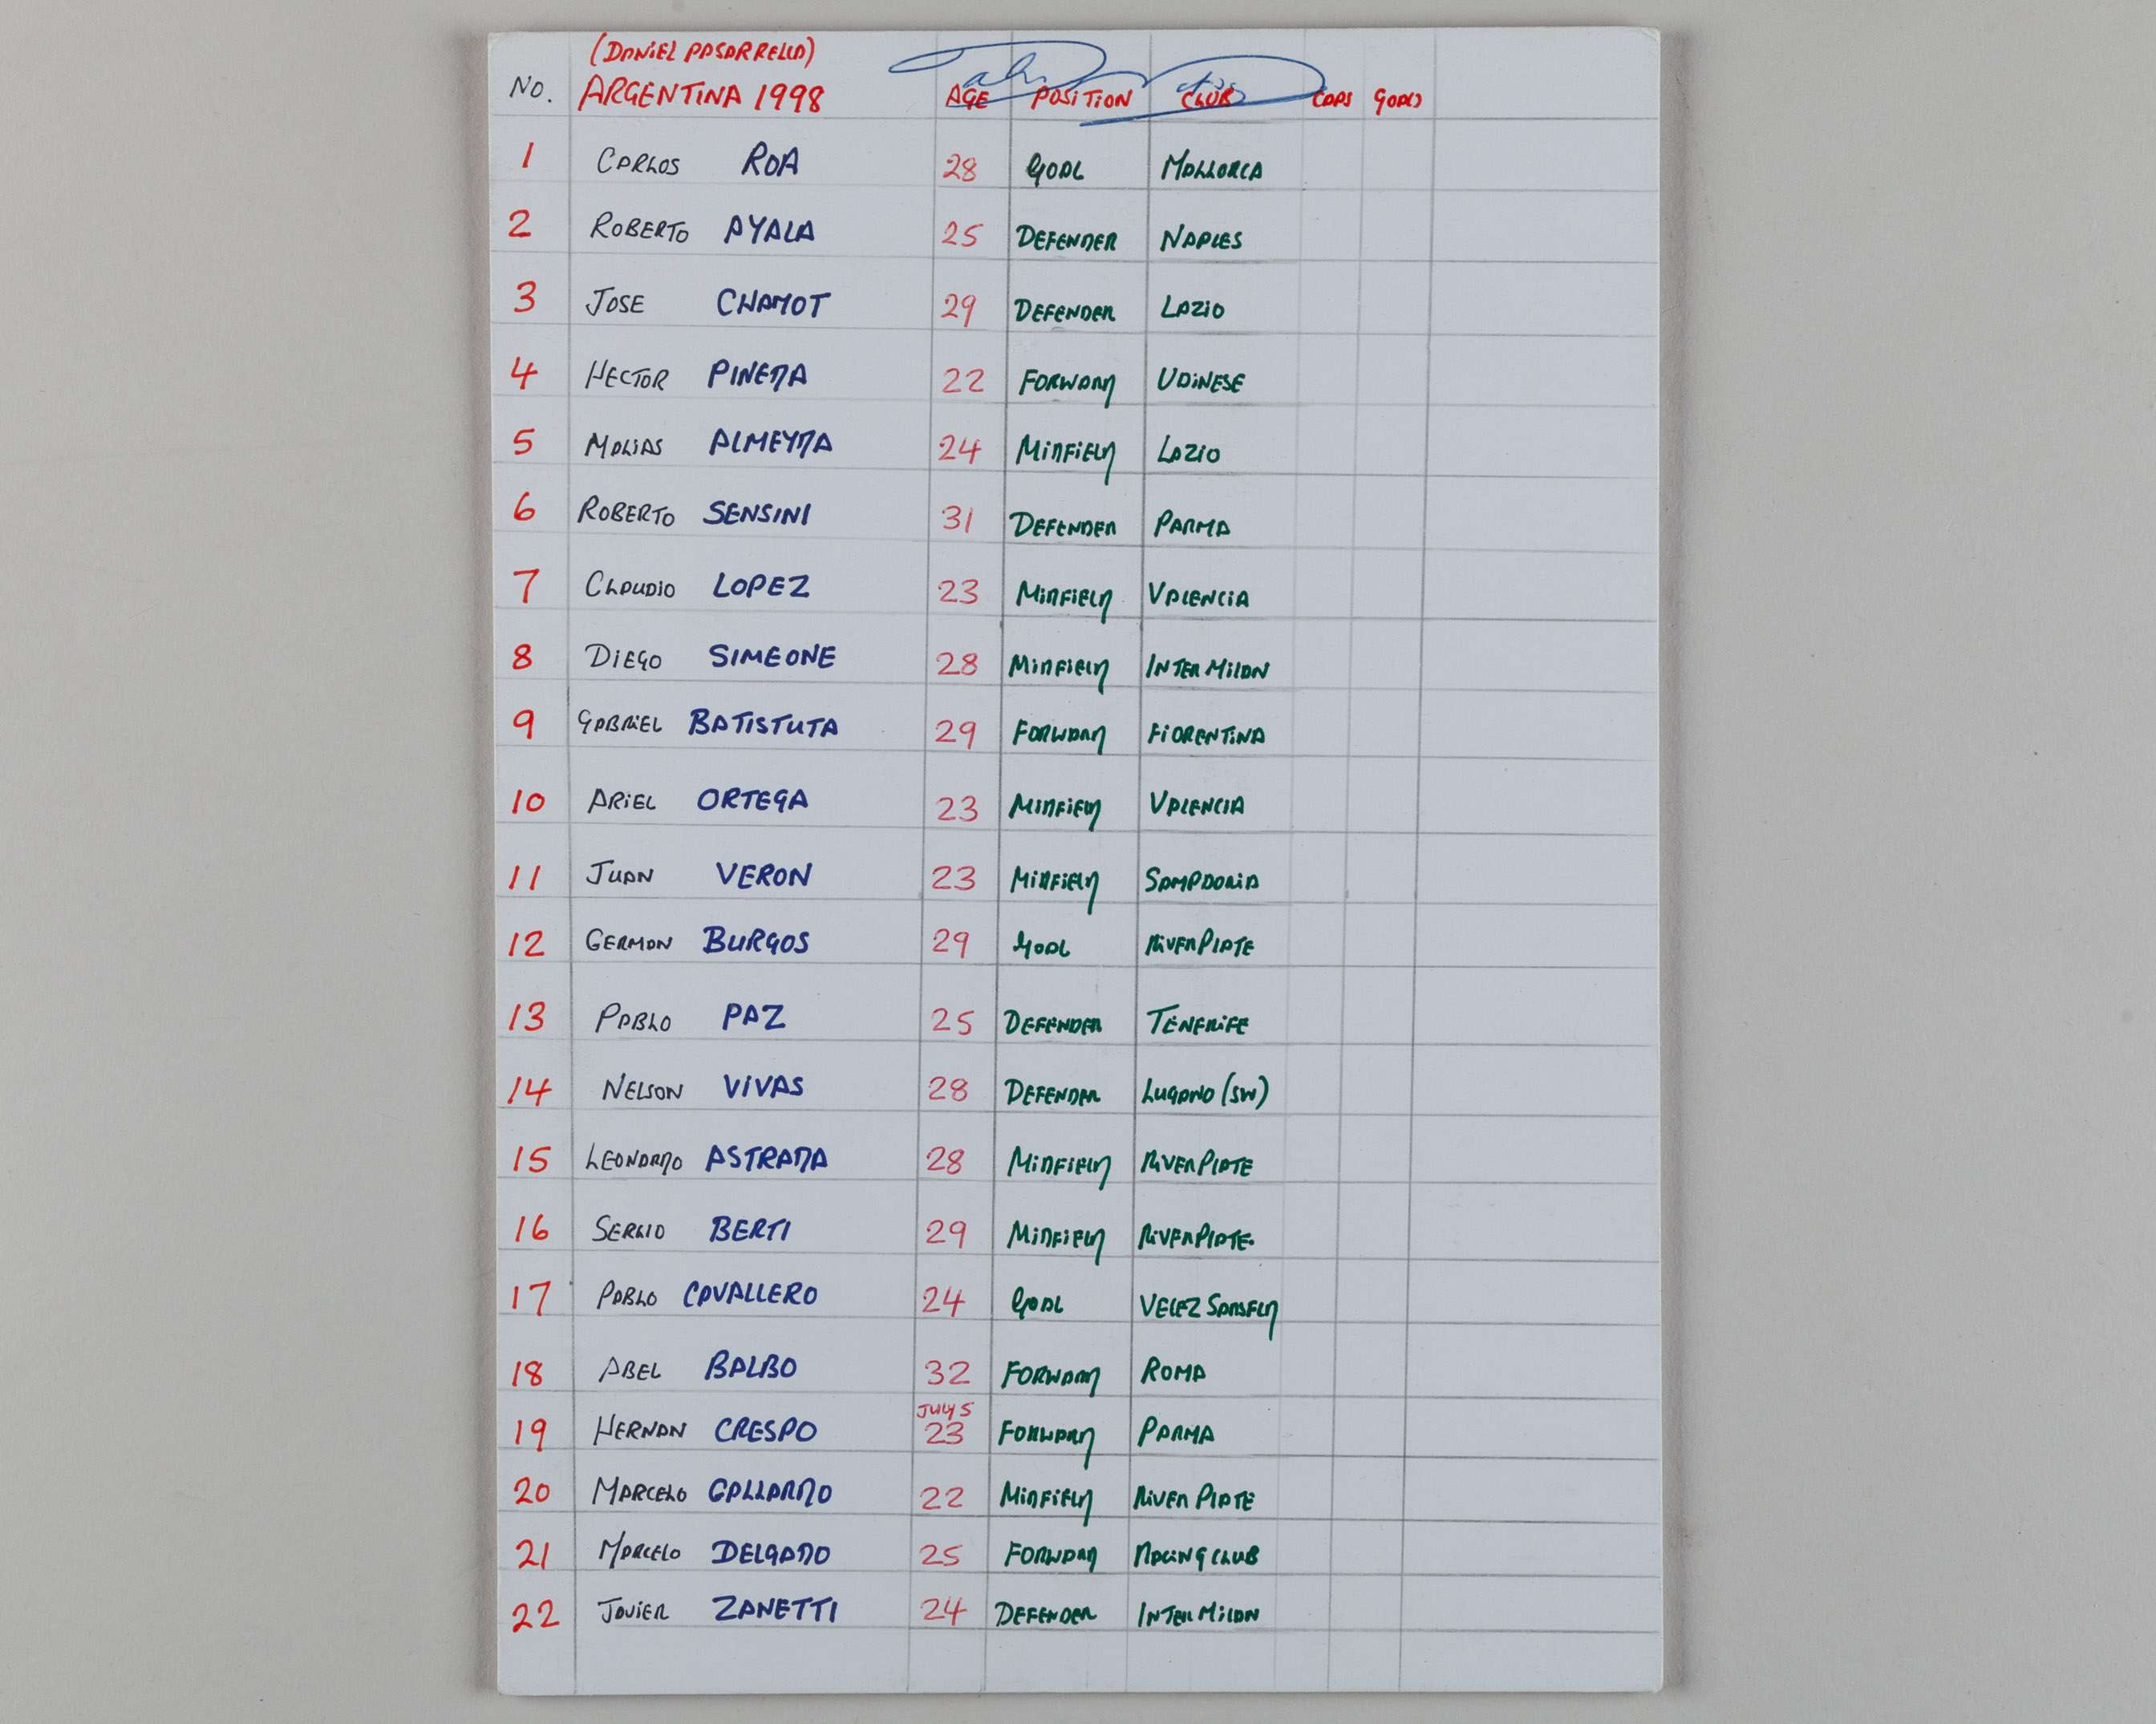 (DANIEL PASARRELLA)
No. ARGENTINA 1998 AGE POSITION CLUB CAPS GOALS
1 CARLOS ROA 28 GOAL MALLORCA
2 ROBERTO AYALA 25 DEFENDER NAPLES
3 JOSE CHAMOT 29 DEFENDER LAZIO
4 HECTOR PINEDA 22 FORWARD UDINESE
5 MALIAS ALMEYDA 24 MIDFIELD LAZIO
6 ROBERTO SENSINI 31 DEFENDER PARMA
7 CLAUDIO LOPEZ 23 MIDFIELD VALENCIA
8 DIEGO SIMEONE 28 MIDFIELD INTER MILAN
9 GABRIEL BATISTUTA 29 FORWARD FIORENTINA
10 ARIEL ORTEGA 23 MIDFIELD VALENCIA
11 JUAN VERON 23 MIDFIELD SAMPDORIA
12 GERMAN BURGOS 29 GOAL RIVER PLATE
13 PABLO PAZ 25 DEFENDER TENERIFE
14 NELSON VIVAS 28 DEFENDER LUGANO (SW)
15 LEONARDO ASTRADA 28 MIDFIELD RIVER PLATE
16 SERGIO BERTI 29 MIDFIELD RIVER PLATE
17 PABLO CAVALLERO 24 GOAL VELEZ SARSFLD
18 ABEL BALBO 32 FORWARD ROMA
JULY 5
19 HERNAN CRESPO 23 FORWARD PARMA
20 MARCELO GALLARDO 22 MIDFIELD RIVER PLATE
21 MARCELO DELGADO 25 FORWARD RACING CLUB
22 JAVIER ZANETTI 24 DEFENDER INTER MILAN